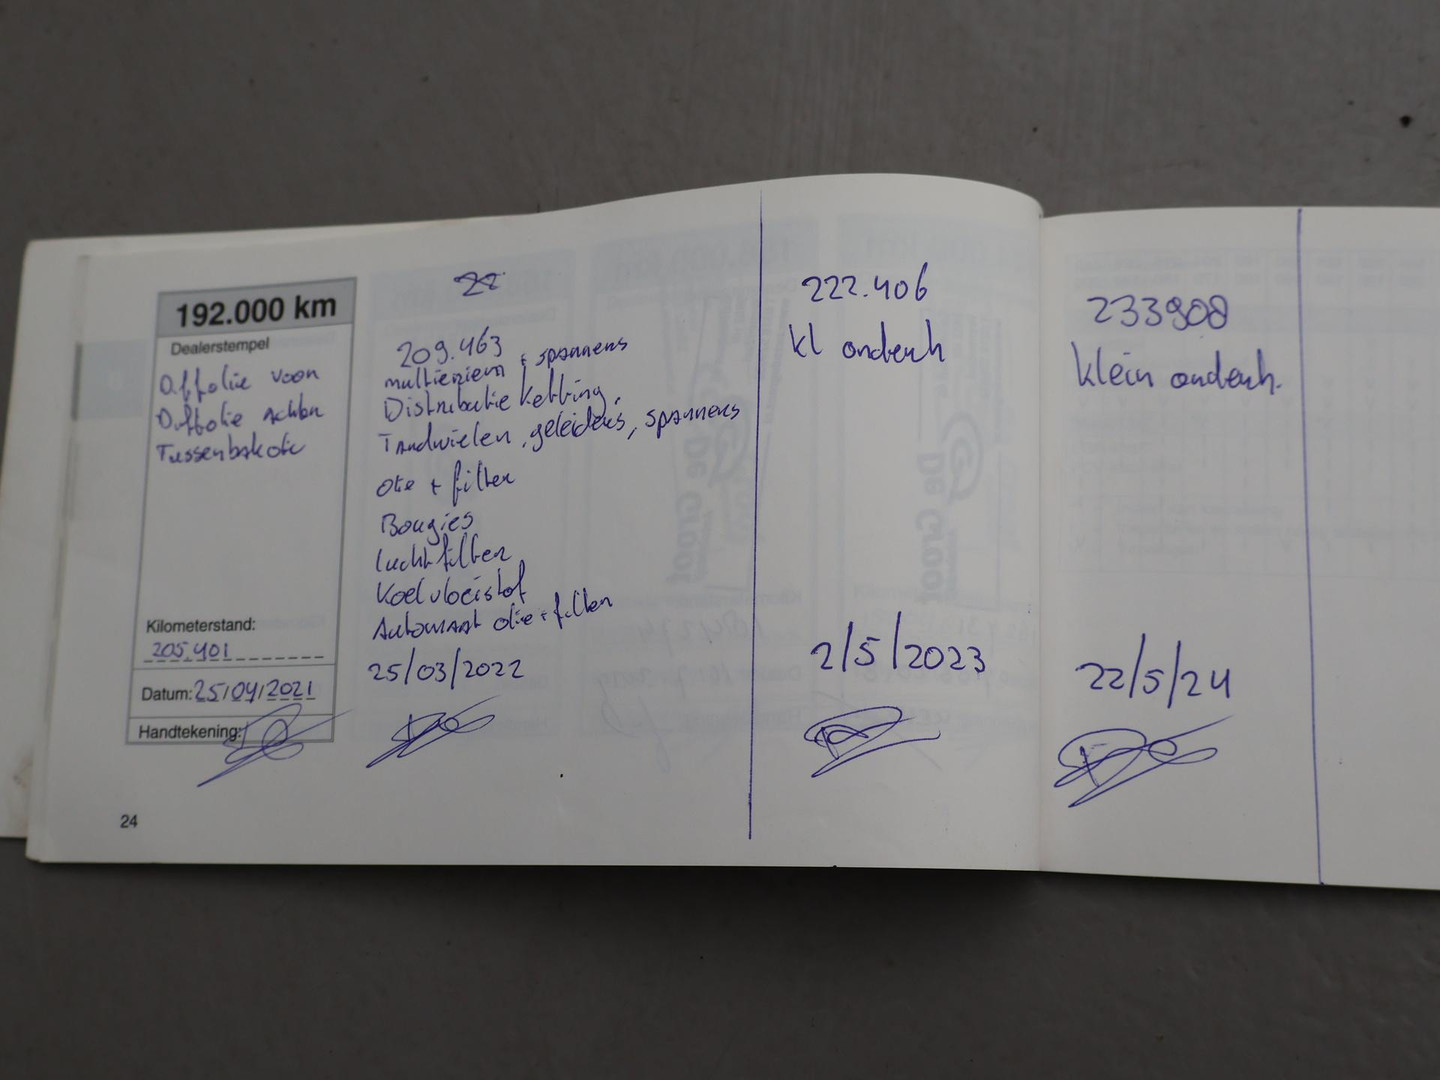 192.000 km
Dealerstempel
Diffolie voor
Diffolie Achter
Tussenbakolie
Kilometerstand:
205.401
Datum: 25/04/2021
Handtekening:
24
22
209.463
multiriem + spanners
Distributie ketting,
Tandwielen, geleiders, spanners
olie + filter
Bougies
luchtfilter
Koelvloeistof
Automaat olie + filter
25/03/2022
222.406
kl onderh
2/5/2023
233908
klein onderh.
22/5/24
De Groot
De Groot